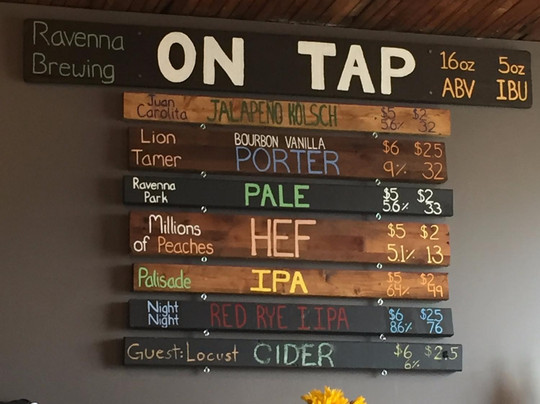 Ravenna Brewing
ON TAP
16oz 5oz
ABV IBU
Juan Carolita JALAPEÑO KOLSCH $5 $2
5.6% 32
Lion Tamer BOURBON VANILLA PORTER $6 $2.5
9% 32
Ravenna Park PALE $5 $2
5.6% 33
Millions of Peaches HEF $5 $2
5.1% 13
Palisade IPA $5 $2
49
Night Night RED RYE IIPA $6 $2.5
8.6% 76
Guest: Locust CIDER $6 $2.5
6%